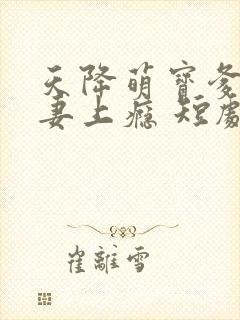 天降萌寶爹
妻上癮 短劇
崔離雪